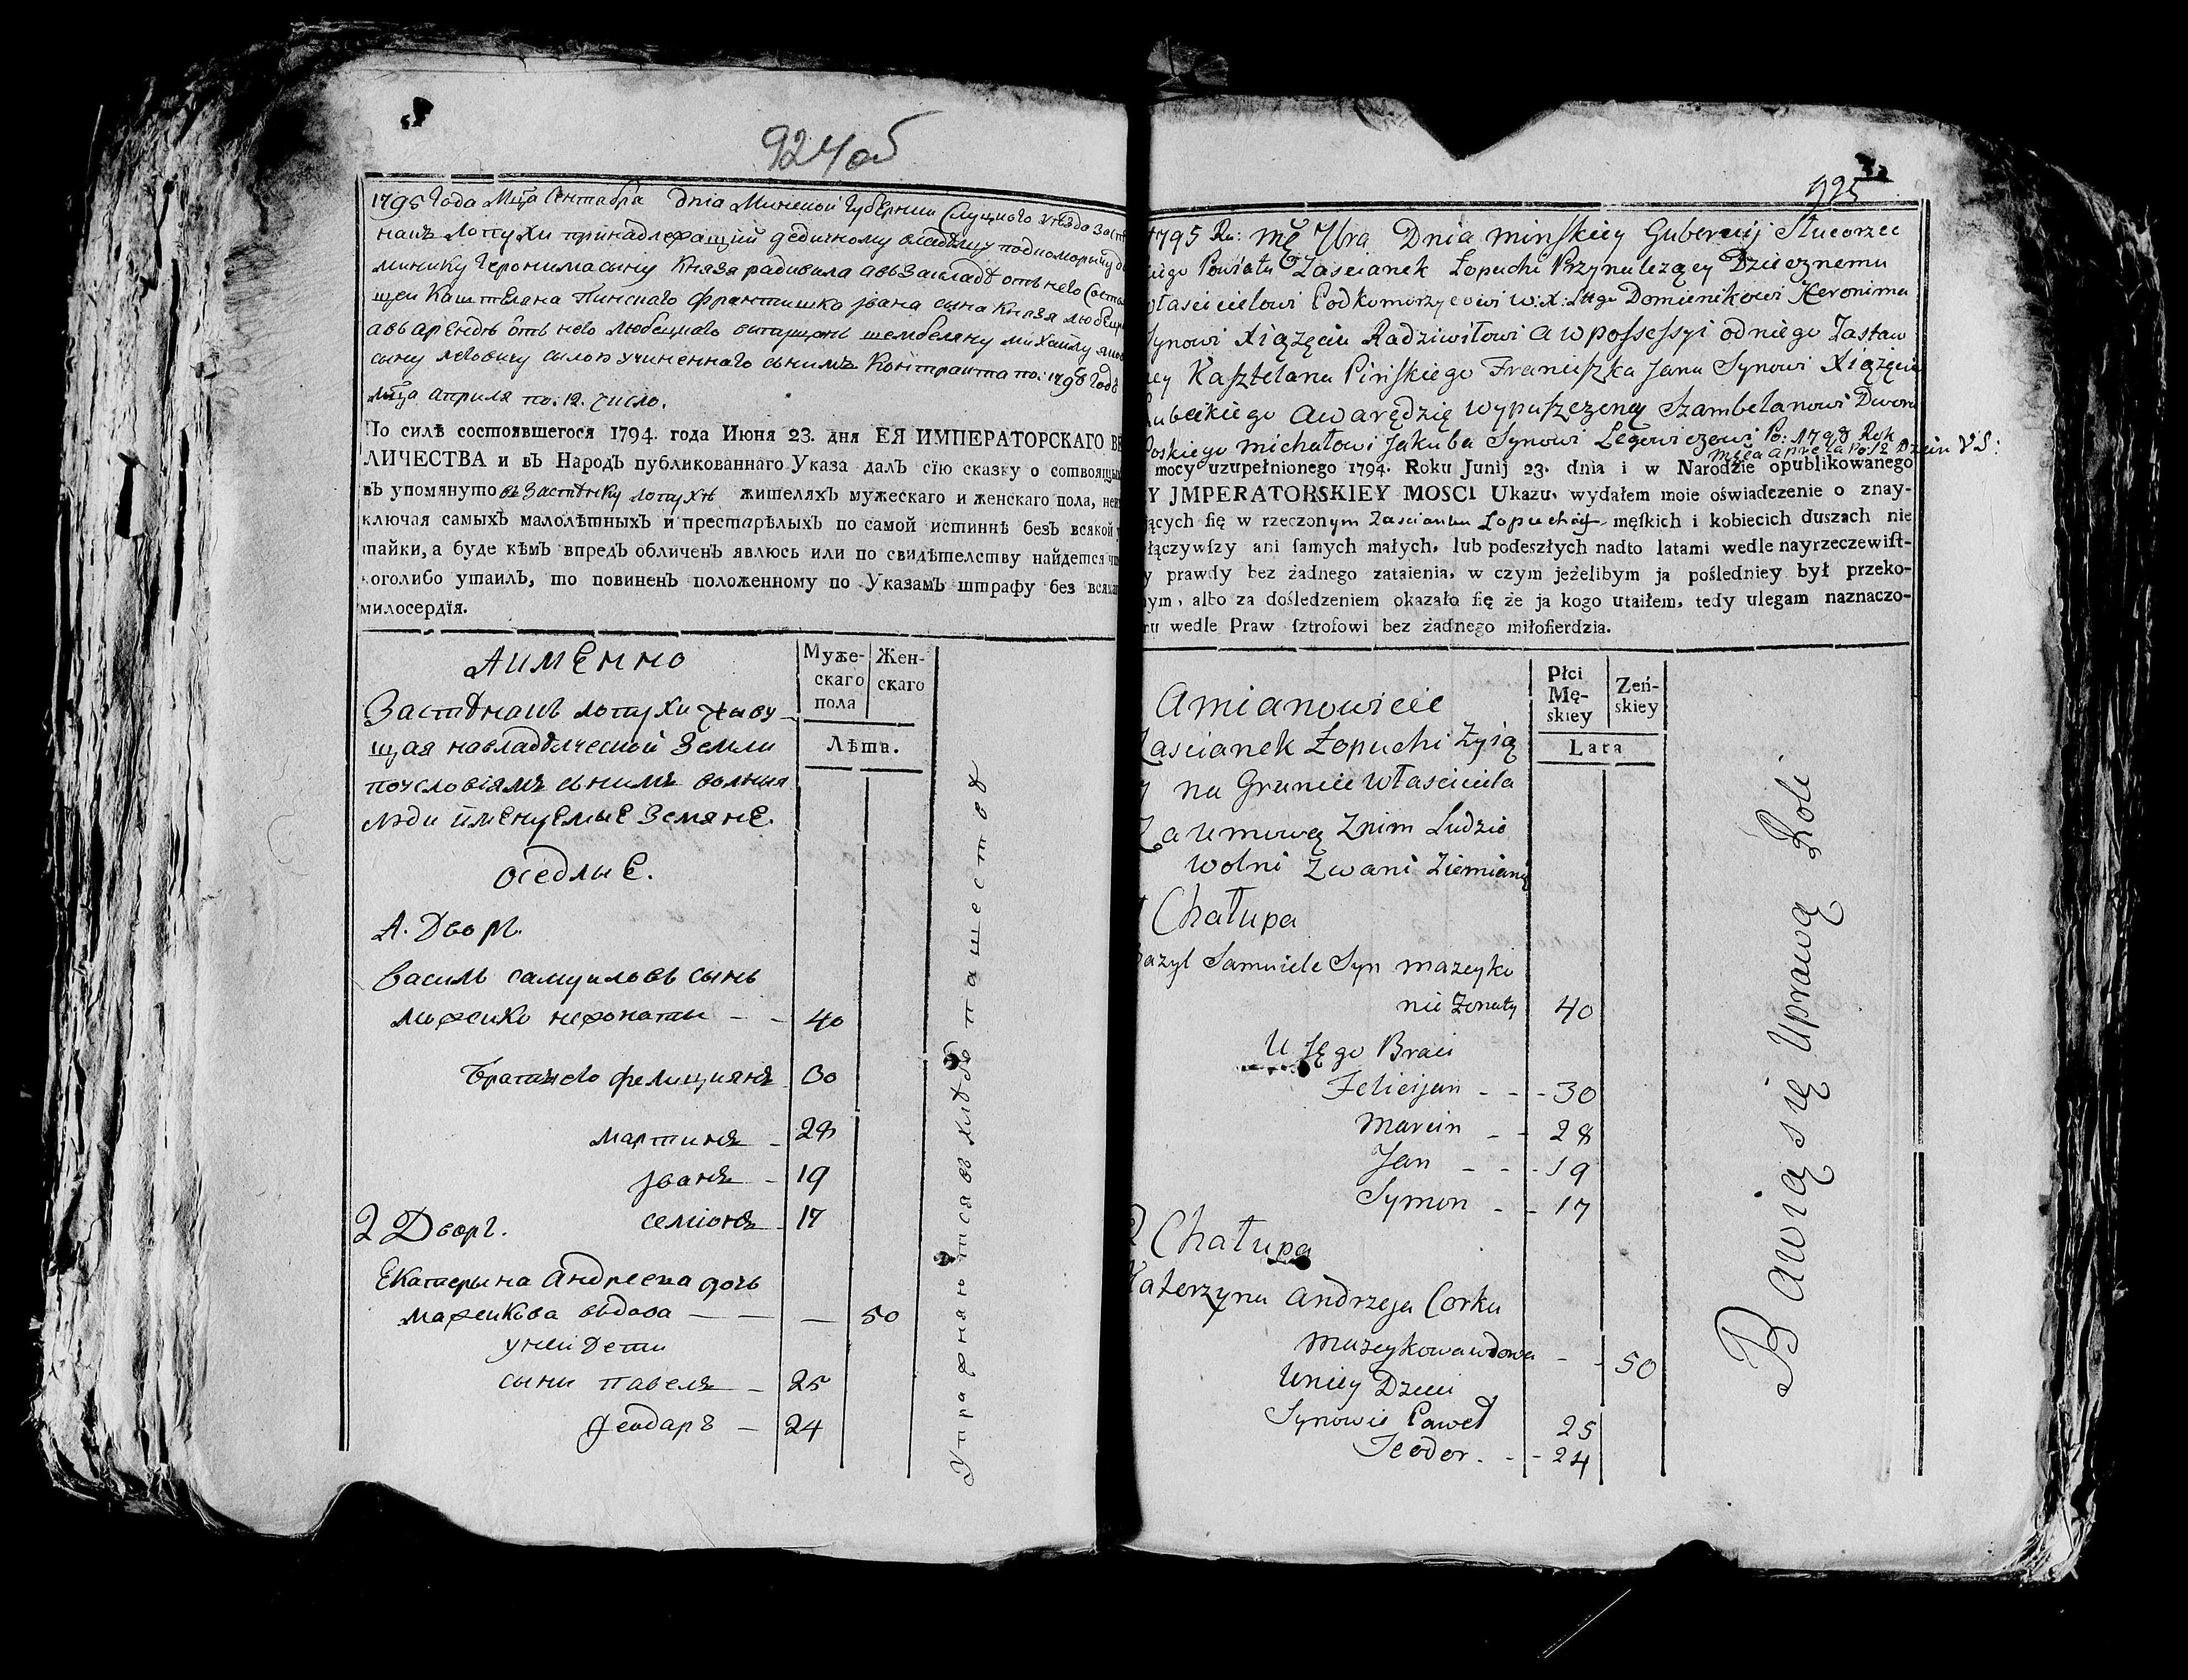 924об
1795 Года Мца Сентабра Dnia Минской Губернии Слуцкого уезда Заст
нак Лопухи принадлежащий дедичному владельцу подкоморыцу до
минику Геронима сыну Князя радивила а въ закладе отъ него
щеи Каштеляна Пинскаго Францишка Iвана сына Князя любец
а въ арендѣ отъ него любецкаго шембеляну михаилу
сыну легович силою учиненнаго сънимъ Контракта по: 1798 Годъ
Мца априля по: 12. число.
По силѣ состоявшегося 1794. года Июня 23. дня ЕЯ ИМПЕРАТОРСКАГО ВЕ
ЛИЧЕСТВА и въ Народъ публикованнаго Указа далъ сїю сказку о сотвоящых
въ упомянуто въ Застѣнку лопухѣ жителяхъ мужескаго и женскаго пола, неи
ключая самыхъ малолѣтныхъ и престарѣлыхъ по самой истиннѣ безъ всякой у
тайки, а буде кѣмъ впредъ обличенъ явлюсь или по свидѣтелству найдется чт
коголибо утаилъ, то повиненъ положенному по Указамъ штрафу без всяка
милосердїя.
Аименно
Муже-
скаго
пола
Жен-
скаго
Лѣта.
Застѣнакъ лопухи живу
щая навладѣлческой Земли
поусловіямъ снимъ волныя
люди именуемые Земяне.
оседлые.
1. Дворъ.
Василь самуиловъ сынъ
Мажейко нежонаты - - 40
Братъ его фелициянъ 30
мартинъ - 28
Jванъ - 19
семіонъ - 17
2 Дворъ.
Екатерына андреева дочь
мажейкова въдова — — — 50
у неи дети
сыны павелъ - 25
феодаръ - 24
Упражняютсяв хлѣбопашествѣ
925
1795 Ru: Mca 7bra Dnia Minskiey Gubernij Słucorzec
kiego Powiatu Zascianek Łopuchi Przynależący Dziedznemu
Włascicielowi Podkomorzycowi W:X:Littgo Domienikowi Heronima
Synowi Xiążęciu Radziwiłowi a w possessyi od niego Zastaw
ney Kasztelana Pińskiego Franciszka Jana Synowi Xiążęcia
Lubeckiego a w arędzię wypuszczoney Szambelanowi Dworu
Polskiego Michałowi Jakuba Synowi Legowiczowi Po: 1798 Rok
Mięca aprela Po: 12 Dzein V S:
mocy uzupełnionego 1794. Roku Junij 23. dnia i w Narodzie opublikowanego
Y JMPERATORSKIEY MOSCI Ukazu, wydałem moie oświadczenie o znay-
jących się w rzeczonym Zascianku Łopuchach męſkich i kobiecich duszach nie
łączywſzy ani ſamych małych, lub podeszłych nadto latami wedle nayrzeczewiſt-
y prawdy bez żadnego zataienia, w czym jeżelibym ja pośledniey był przeko-
nym, albo za dośledzeniem okazało ſię że ja kogo utaiłem, tedy ulegam naznaczo-
mu wedle Praw ſztrofowi bez żadnego miłoſierdzia.
Amianowicie
Płci
Mę-
skiey
Zeń-
skiey
Lata
Zascianek Łopuchi Żyią
y na Gruncie Właściciela
Za umową Znim Ludzie
Wolni Zwani Ziemianę
1 Chałupa
Bazyl Samuiele Syn Mazeyko
nie Żonaty 40
U Jęgo Braci
Felicijan - - - 30
Marcin - - 28
Jan - - - 19
Symon - - 17
2 Chałupa
Katerzyna Andrzeja Corka
Mazeykowa wdowa - - 50
U niey Dzieci
Synowie Paweł 25
Teodor. - - 24
Bawią się Uprawą Roli